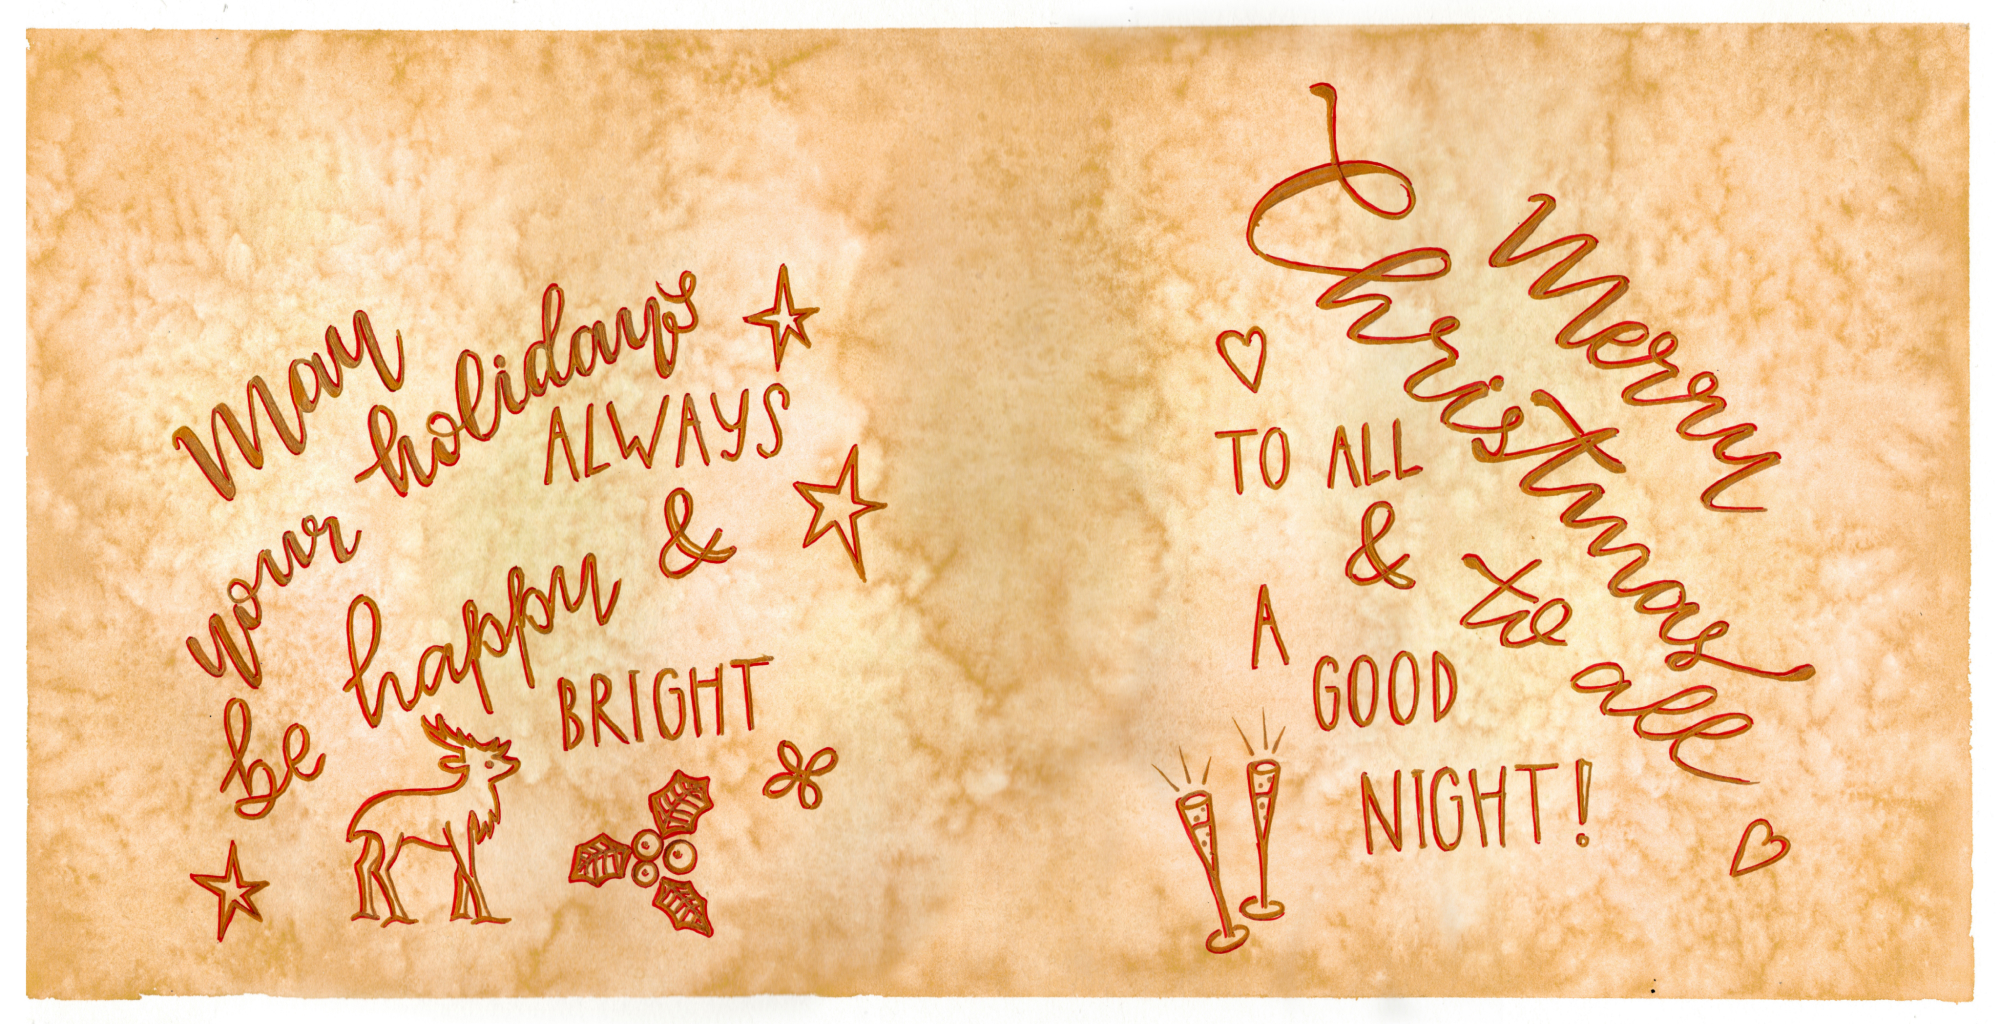 May
your holidays
ALWAYS
be happy &
BRIGHT
Merry
Christmas
to all
TO ALL
&
A
GOOD
NIGHT!